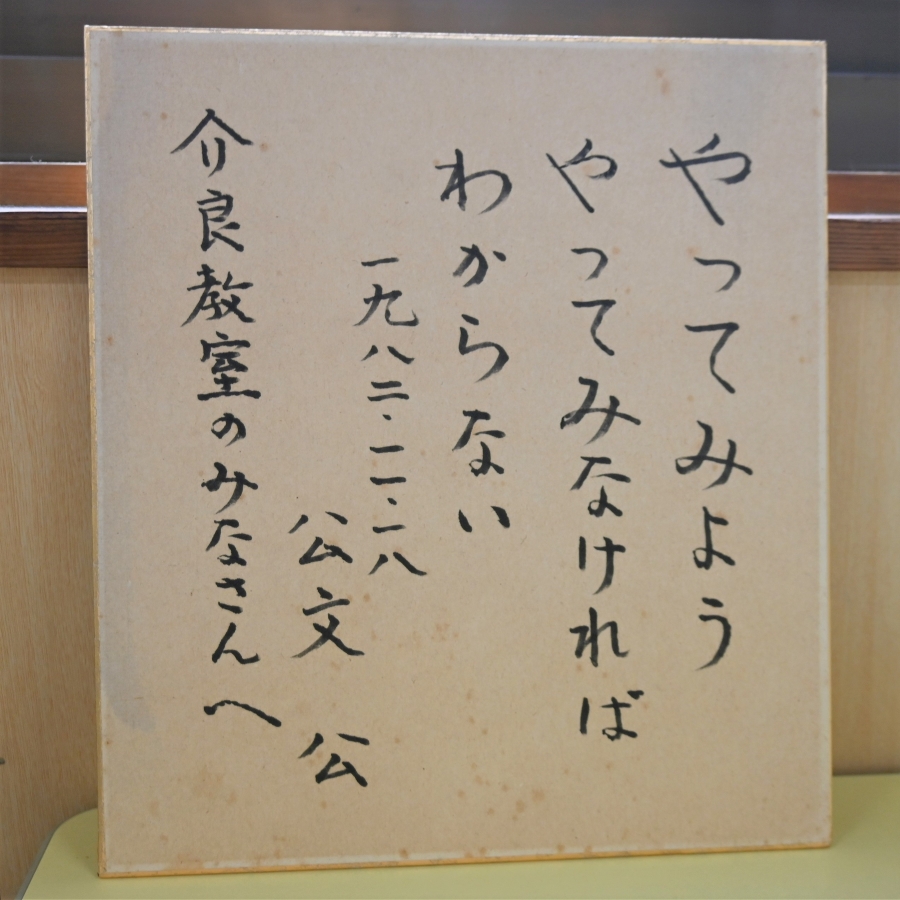 やってみよう
やってみなければ
わからない
一九八二・一一・一八
公文 公
介良教室のみなさんへ